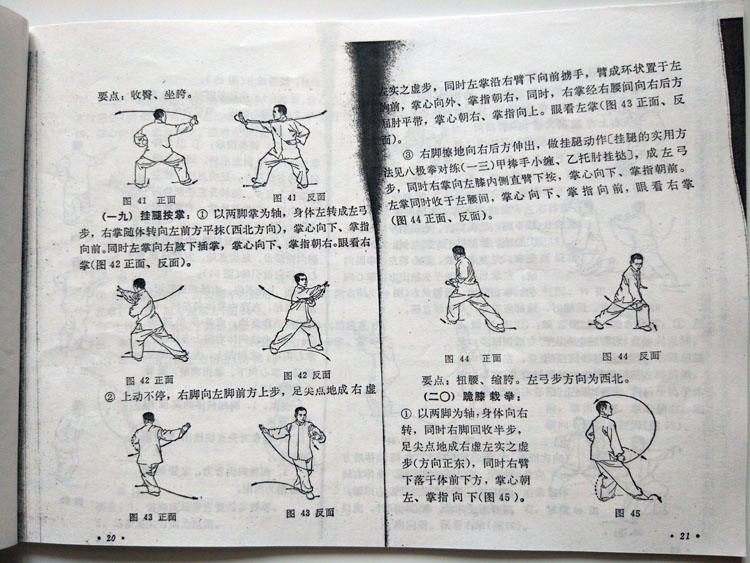 要点：收臀、坐胯。
图 41 正面
图 41 反面
(一九) 挂腿按掌：① 以两脚掌为轴，身体左转成左弓
步，右掌随体转向左前方平抹(西北方向)，掌心向下、掌指
向前。同时左掌向右腋下插掌，掌心向下、掌指朝右。眼看右
掌(图 42 正面、反面)。
图 42 正面
图 42 反面
② 上动不停，右脚向左脚前方上步，足尖点地成右虚
图 43 正面
图 43 反面
· 20 ·
左实之虚步，同时左掌沿右臂下向前掤手，臂成环状置于左
胸前，掌心向外、掌指朝右，同时，右掌经右腰间向右后方
屈肘平带，掌心朝右、掌指向上。眼看左掌(图 43 正面、反
面)。
③ 右脚擦地向右后方伸出，做挂腿动作〔挂腿的实用方
法见八极拳对练(一三)甲捧手小缠、乙托肘挂挞〕，成左弓
步，同时右掌向左膝内侧直臂下按，掌心向下、掌指朝前。
左掌同时收于左腰间，掌心向下、掌指向前，眼看右掌
(图 44 正面、反面)。
图 44 正面
图 44 反面
要点：扭腰、缩胯。左弓步方向为西北。
(二〇) 跪膝栽拳：
① 以两脚为轴，身体向右
转，同时右脚回收半步，
足尖点地成右虚左实之虚
步(方向正东)，同时右臂
下落于体前下方，掌心朝
左、掌指向下(图 45)。
图 45
· 21 ·